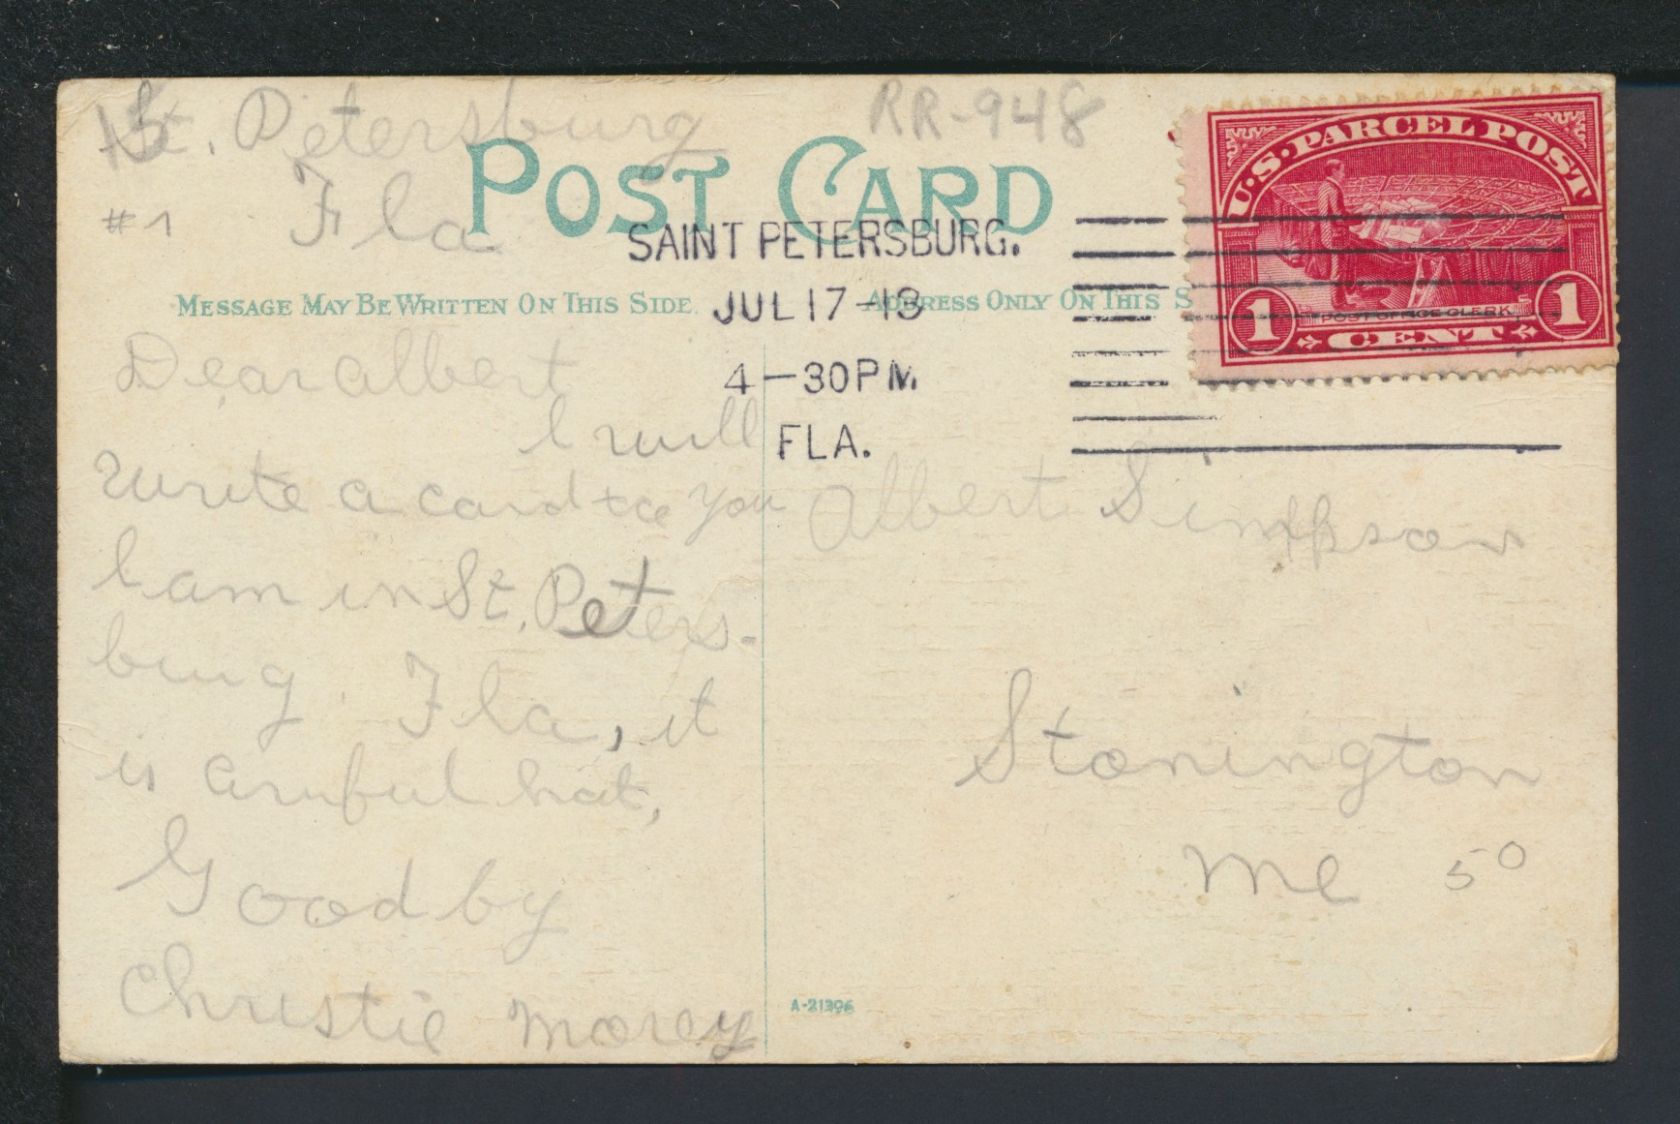 St. Petersburg
Fla
#1
RR-948
POST CARD
SAINT PETERSBURG.
JUL 17 -13
4-30PM
FLA.
U.S. PARCEL POST
POST OFFICE CLERK
1 CENT 1
MESSAGE MAY BE WRITTEN ON THIS SIDE.
ADDRESS ONLY ON THIS S
Dear albert
I will
write a card to you
I am in St. Peters-
burg. Fla, it
is awful hot,
Good by
Christie Morey
Albert Simpson
Stonington
Me
50
A-21396